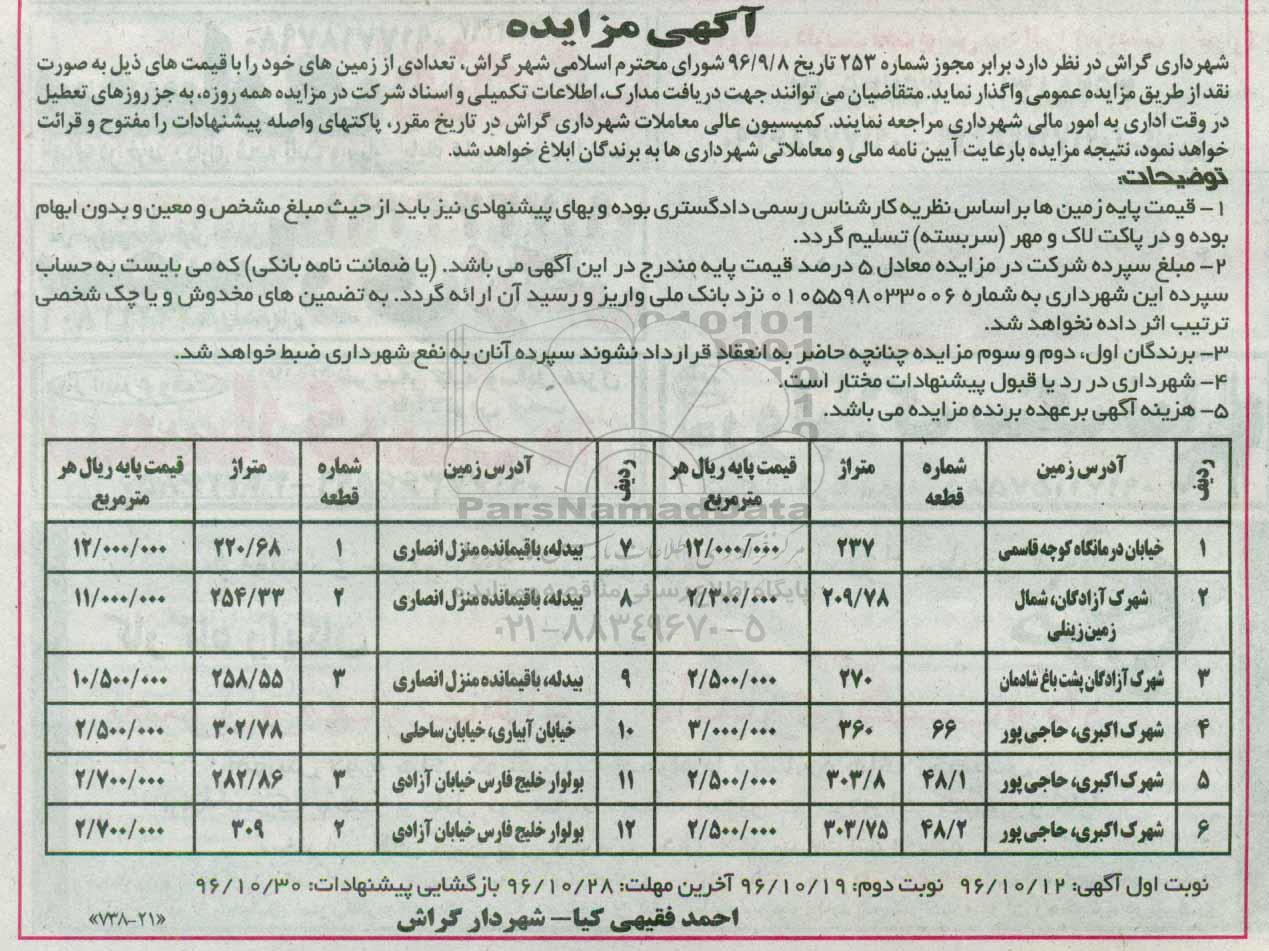 آگهی مزایده
شهرداری گراش در نظر دارد برابر مجوز شماره ۲۵۳ تاریخ ۹۶/۹/۸ شورای محترم اسلامی شهر گراش، تعدادی از زمین های خود را با قیمت های ذیل به صورت
نقد از طریق مزایده عمومی واگذار نماید. متقاضیان می توانند جهت دریافت مدارک، اطلاعات تکمیلی و اسناد شرکت در مزایده همه روزه، به جز روزهای تعطیل
در وقت اداری به امور مالی شهرداری مراجعه نمایند. کمیسیون عالی معاملات شهرداری گراش در تاریخ مقرر، پاکتهای واصله پیشنهادات را مفتوح و قرائت
خواهد نمود، نتیجه مزایده بارعایت آیین نامه مالی و معاملاتی شهرداری ها به برندگان ابلاغ خواهد شد.
توضیحات:
۱- قیمت پایه زمین ها براساس نظریه کارشناس رسمی دادگستری بوده و بهای پیشنهادی نیز باید از حیث مبلغ مشخص و معین و بدون ابهام
بوده و در پاکت لاک و مهر (سربسته) تسلیم گردد.
۲- مبلغ سپرده شرکت در مزایده معادل ۵ درصد قیمت پایه مندرج در این آگهی می باشد. (یا ضمانت نامه بانکی) که می بایست به حساب
سپرده این شهرداری به شماره ۰۱۰۵۵۹۸۰۳۳۰۰۶ نزد بانک ملی واریز و رسید آن ارائه گردد. به تضمین های مخدوش و یا چک شخصی
ترتیب اثر داده نخواهد شد.
۳- برندگان اول، دوم و سوم مزایده چنانچه حاضر به انعقاد قرارداد نشوند سپرده آنان به نفع شهرداری ضبط خواهد شد.
۴- شهرداری در رد یا قبول پیشنهادات مختار است.
۵- هزینه آگهی برعهده برنده مزایده می باشد.
ردیف آدرس زمین شماره قطعه متراژ قیمت پایه ریال هر مترمربع ردیف آدرس زمین شماره قطعه متراژ قیمت پایه ریال هر مترمربع
۱ خیابان درمانگاه کوچه قاسمی ۲۳۷ ۱۲/۰۰۰/۰۰۰ ۷ بیدله، باقیمانده منزل انصاری ۱ ۲۲۰/۶۸ ۱۲/۰۰۰/۰۰۰
۲ شهرک آزادگان، شمال زمین زینلی ۲۰۹/۷۸ ۲/۳۰۰/۰۰۰ ۸ بیدله، باقیمانده منزل انصاری ۲ ۲۵۴/۳۳ ۱۱/۰۰۰/۰۰۰
۳ شهرک آزادگان پشت باغ شادمان ۲۷۰ ۲/۵۰۰/۰۰۰ ۹ بیدله، باقیمانده منزل انصاری ۳ ۲۵۸/۵۵ ۱۰/۵۰۰/۰۰۰
۴ شهرک اکبری، حاجی پور ۶۶ ۳۶۰ ۳/۰۰۰/۰۰۰ ۱۰ خیابان آبیاری، خیابان ساحلی ۳۰۲/۷۸ ۲/۵۰۰/۰۰۰
۵ شهرک اکبری، حاجی پور ۴۸/۱ ۳۰۳/۸ ۲/۵۰۰/۰۰۰ ۱۱ بولوار خلیج فارس خیابان آزادی ۳ ۲۸۲/۸۶ ۲/۷۰۰/۰۰۰
۶ شهرک اکبری، حاجی پور ۴۸/۲ ۳۰۳/۷۵ ۲/۵۰۰/۰۰۰ ۱۲ بولوار خلیج فارس خیابان آزادی ۲ ۳۰۹ ۲/۷۰۰/۰۰۰
ParsNamadData
۰۲۱-۸۸۳۴۹۶۷۰-۵
نوبت اول آگهی: ۹۶/۱۰/۱۲ نوبت دوم: ۹۶/۱۰/۱۹ آخرین مهلت: ۹۶/۱۰/۲۸ بازگشایی پیشنهادات: ۹۶/۱۰/۳۰
احمد فقیهی کیا- شهردار گراش
«۷۳۸-۲۱»